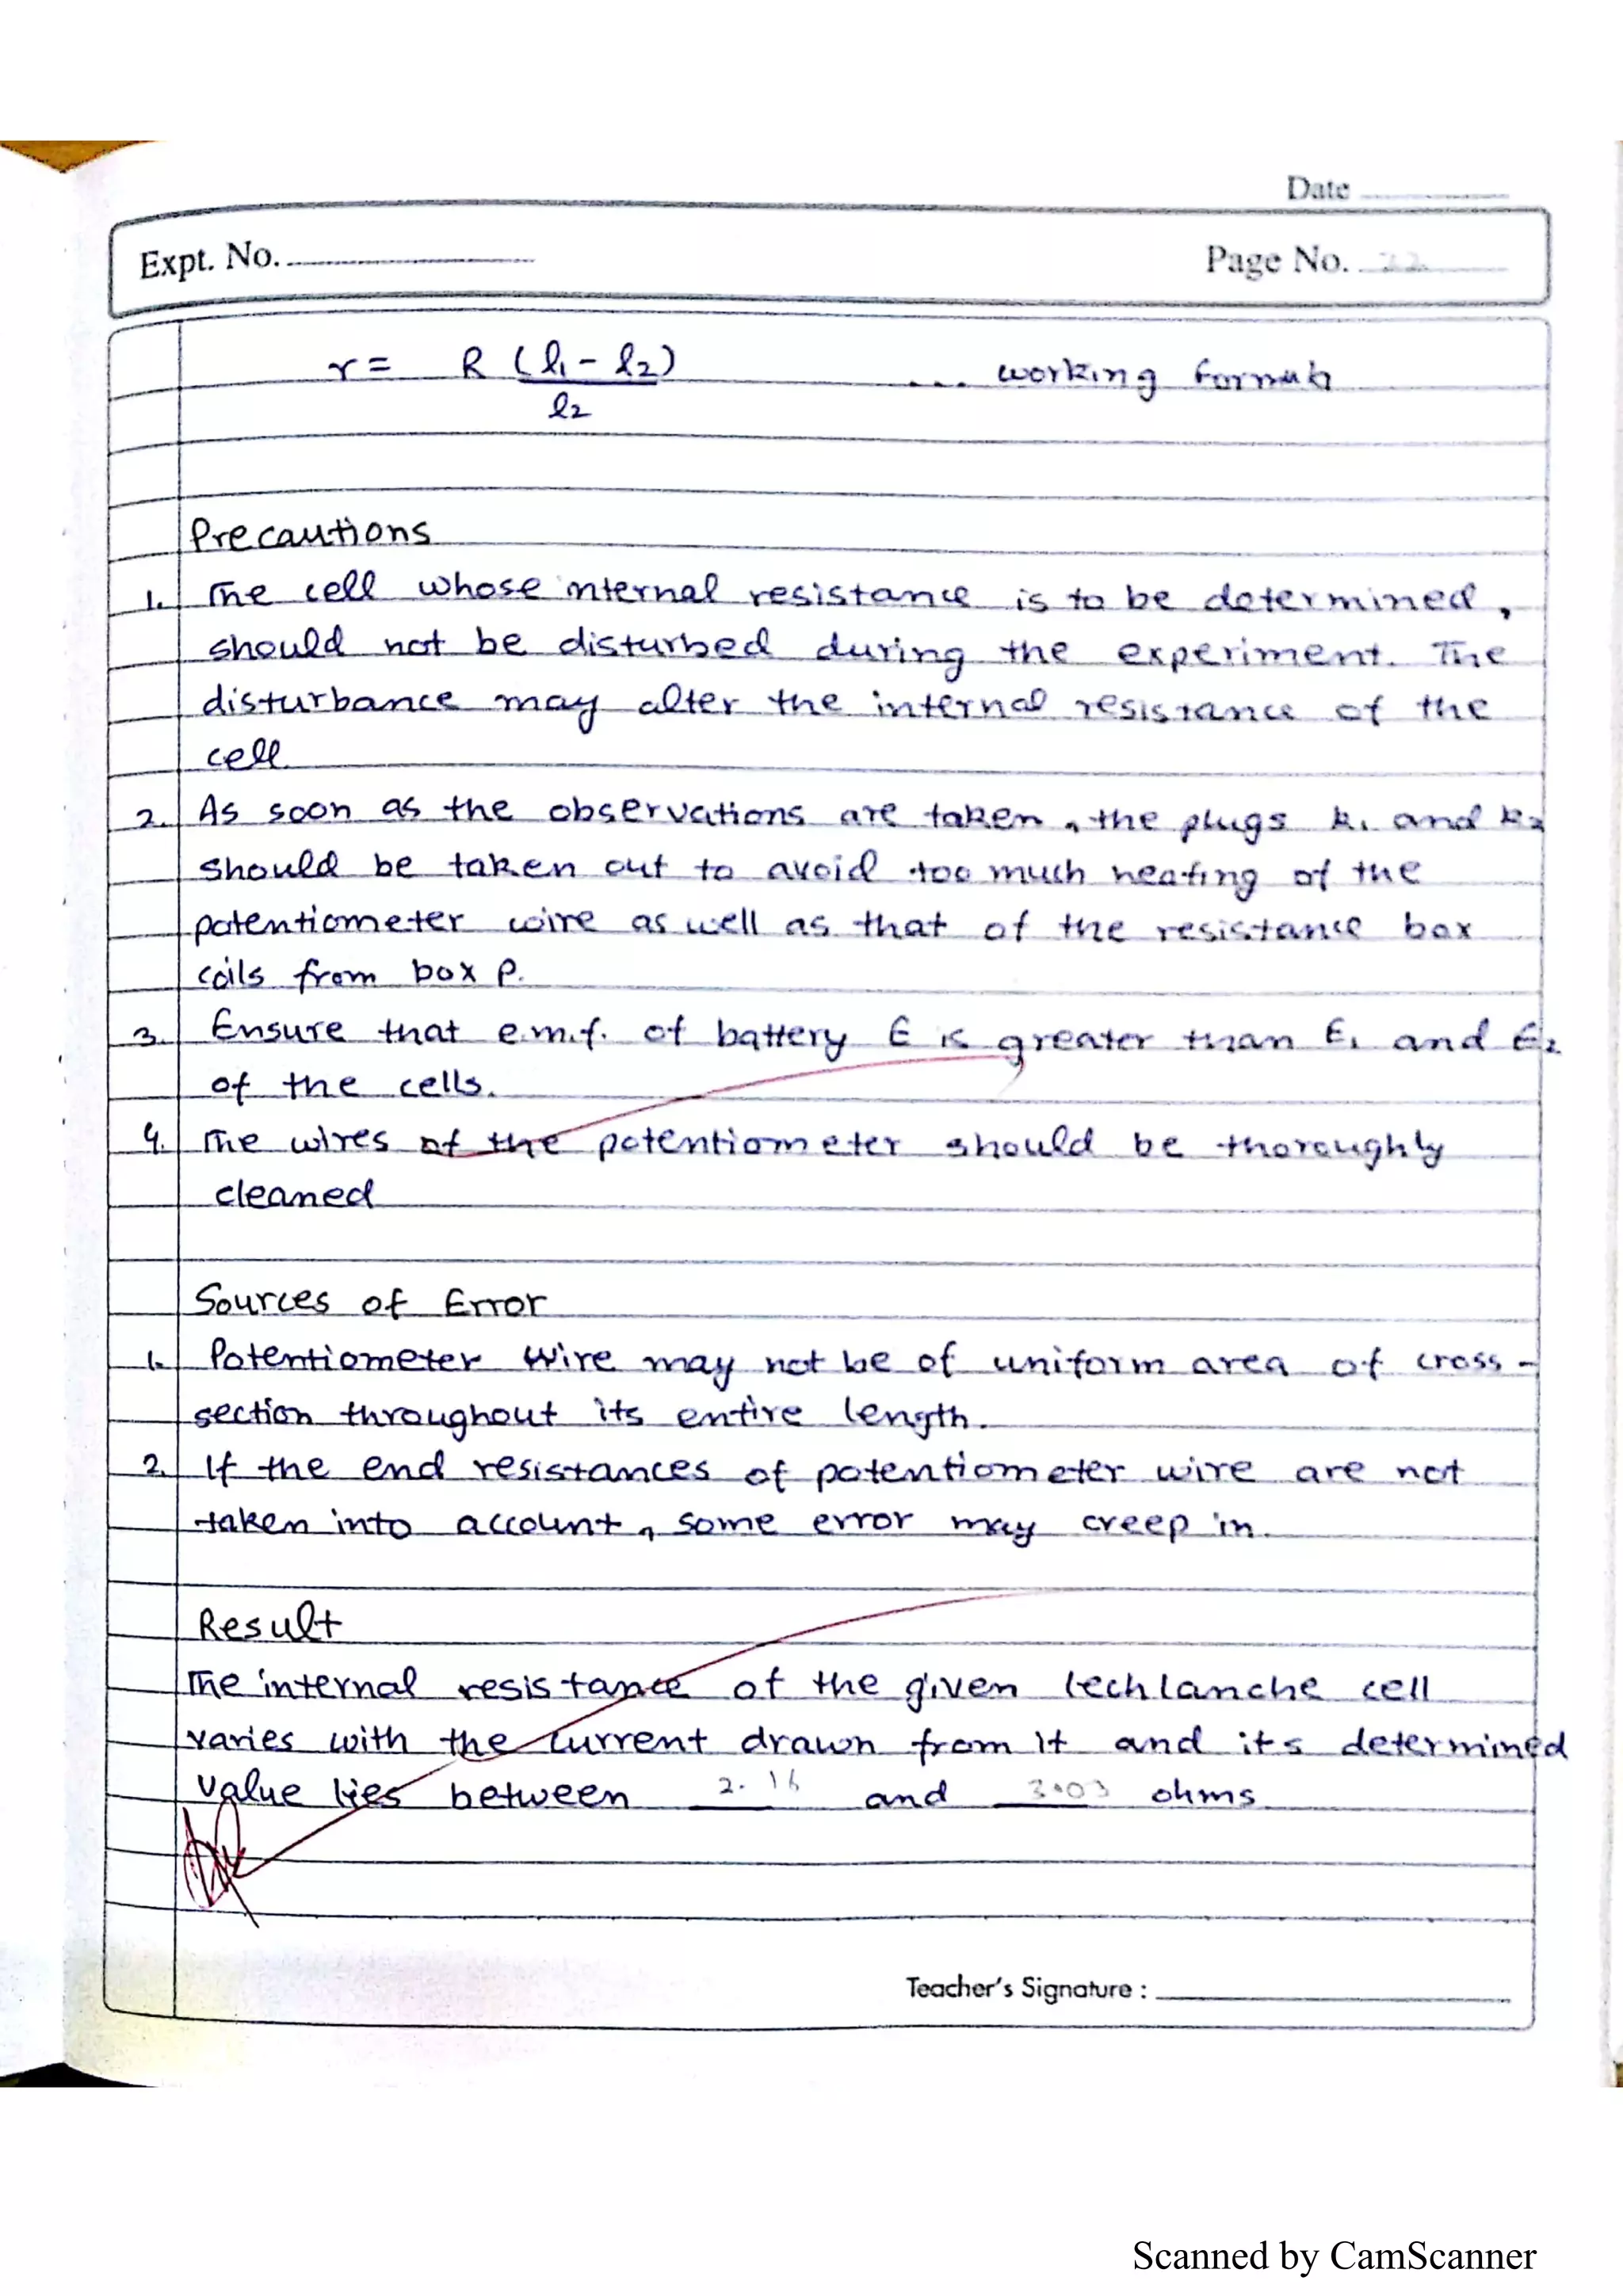 Date
Expt. No.
Page No. 22
r = R (l₁ - l₂)
l₂
... working formula
Precautions
1. The cell whose internal resistance is to be determined,
should not be disturbed during the experiment. The
disturbance may alter the internal resistance of the
cell.
2. As soon as the observations are taken, the plugs k₁ and k₂
should be taken out to avoid too much heating of the
potentiometer wire as well as that of the resistance box
coils from box P.
3. Ensure that e.m.f. of battery E is greater than E₁ and E₂
of the cells.
4. The wires of the potentiometer should be thoroughly
cleaned
Sources of Error
1. Potentiometer wire may not be of uniform area of cross-
section throughout its entire length.
2. If the end resistances of potentiometer wire are not
taken into account, some error may creep in.
Result
The internal resistance of the given lechlanche cell
varies with the current drawn from it and its determined
value lies between 2.16 and 3.03 ohms
Teacher's Signature :
Scanned by CamScanner